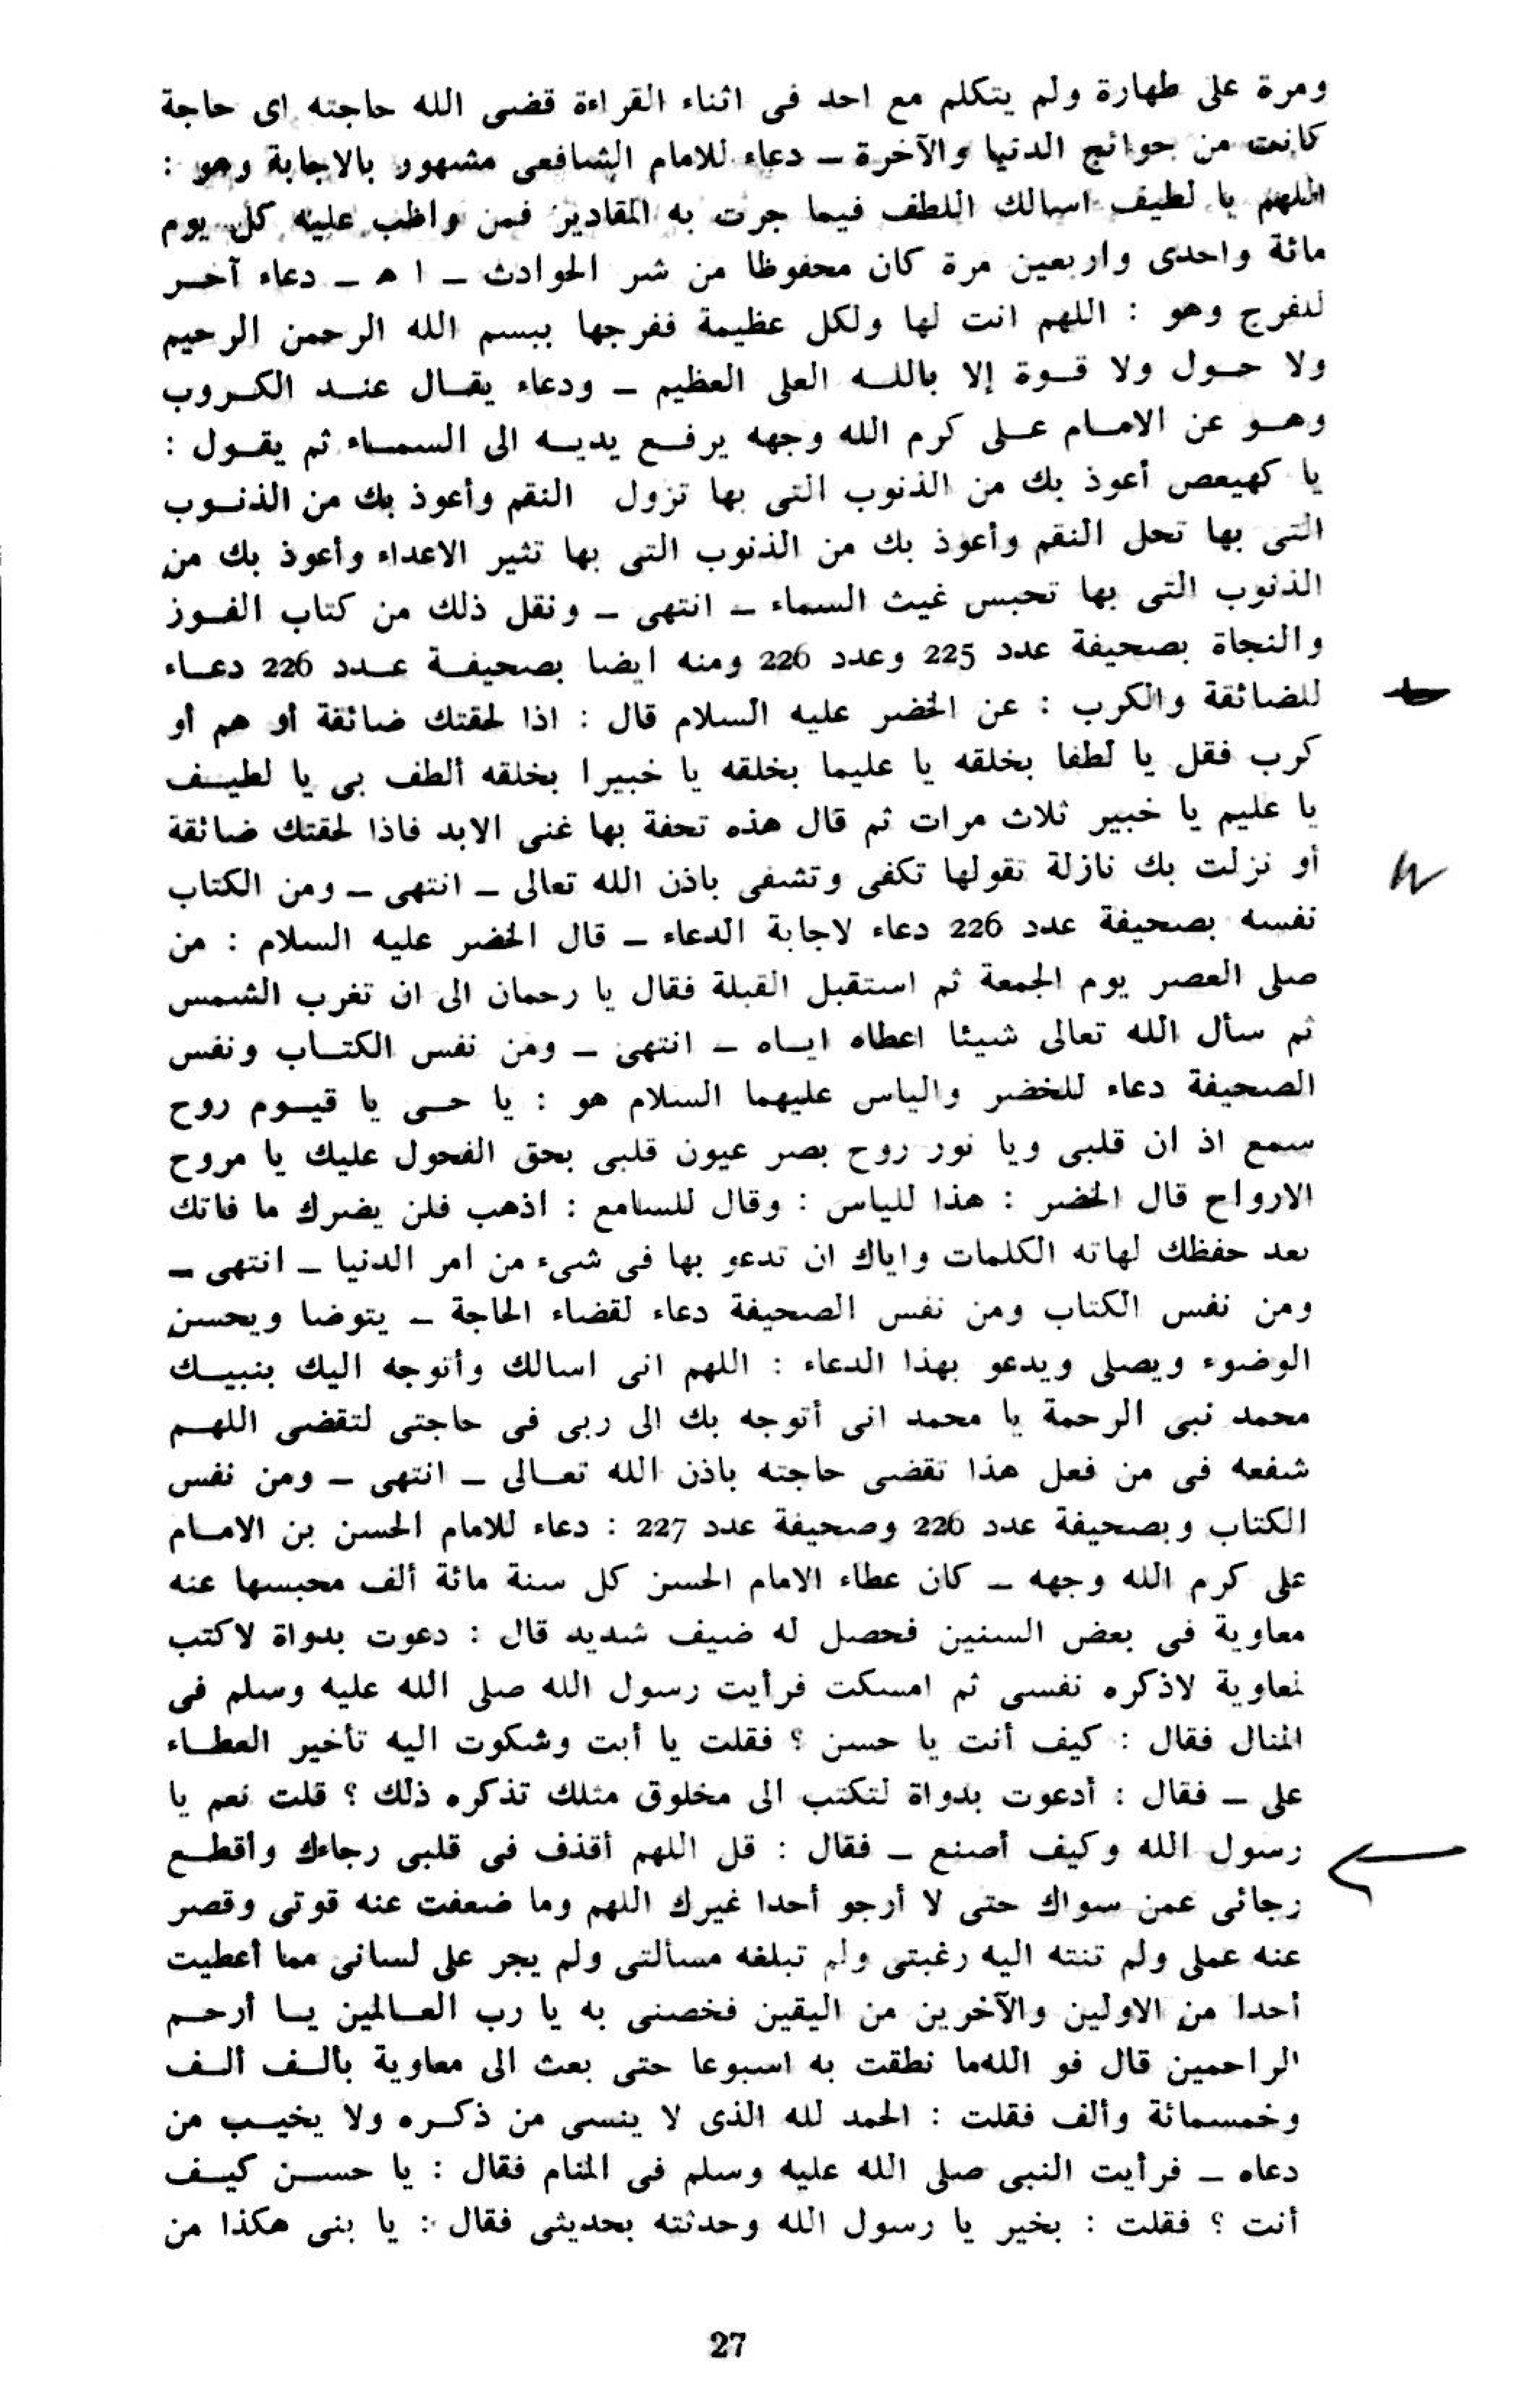 ومرة على طهارة ولم يتكلم مع احد فى اثناء القراءة قضى الله حاجته اى حاجة
كانت من حوائج الدنيا والآخرة ــ دعاء للامام الشافعى مشهور بالاجابة وهو :
اللهم يا لطيف اسالك اللطف فيما جرت به المقادير فمن واظب عليه كل يوم
مائة واحدى واربعين مرة كان محفوظا من شر الحوادث ــ ا هـ ــ دعاء آخر
للفرج وهو : اللهم انت لها ولكل عظيمة ففرجها ببسم الله الرحمن الرحيم
ولا حول ولا قوة إلا بالله العلى العظيم ــ ودعاء يقال عند الكروب
وهو عن الامام على كرم الله وجهه يرفع يديه الى السماء ثم يقول :
يا كهيعص أعوذ بك من الذنوب التى بها تزول النقم وأعوذ بك من الذنوب
التى بها تحل النقم وأعوذ بك من الذنوب التى بها تثير الاعداء وأعوذ بك من
الذنوب التى بها تحبس غيث السماء ــ انتهى ــ ونقل ذلك من كتاب الفوز
والنجاة بصحيفة عدد 225 وعدد 226 ومنه ايضا بصحيفة عدد 226 دعاء
للضائقة والكرب : عن الخضر عليه السلام قال : اذا لحقتك ضائقة أو هم أو
كرب فقل يا لطفا بخلقه يا عليما بخلقه يا خبيرا بخلقه ألطف بى يا لطيف
يا عليم يا خبير ثلاث مرات ثم قال هذه تحفة بها غنى الابد فاذا لحقتك ضائقة
أو نزلت بك نازلة تقولها تكفى وتشفى باذن الله تعالى ــ انتهى ــ ومن الكتاب
نفسه بصحيفة عدد 226 دعاء لاجابة الدعاء ــ قال الخضر عليه السلام : من
صلى العصر يوم الجمعة ثم استقبل القبلة فقال يا رحمان الى ان تغرب الشمس
ثم سأل الله تعالى شيئا اعطاه اياه ــ انتهى ــ ومن نفس الكتاب ونفس
الصحيفة دعاء للخضر والياس عليهما السلام هو : يا حى يا قيوم روح
سمع اذ ان قلبى ويا نور روح بصر عيون قلبى بحق الفحول عليك يا مروح
الارواح قال الخضر : هذا للياس : وقال للسامع : اذهب فلن يضرك ما فاتك
بعد حفظك لهاته الكلمات واياك ان تدعو بها فى شىء من امر الدنيا ــ انتهى ــ
ومن نفس الكتاب ومن نفس الصحيفة دعاء لقضاء الحاجة ــ يتوضا ويحسن
الوضوء ويصلى ويدعو بهذا الدعاء : اللهم انى اسالك وأتوجه اليك بنبيك
محمد نبى الرحمة يا محمد انى أتوجه بك الى ربى فى حاجتى لتقضى اللهم
شفعه فى من فعل هذا تقضى حاجته باذن الله تعالى ــ انتهى ــ ومن نفس
الكتاب وبصحيفة عدد 226 وصحيفة عدد 227 : دعاء للامام الحسن بن الامام
على كرم الله وجهه ــ كان عطاء الامام الحسن كل سنة مائة ألف محبسها عنه
معاوية فى بعض السنين فحصل له ضيف شديد قال : دعوت بدواة لاكتب
لمعاوية لاذكره نفسى ثم امسكت فرأيت رسول الله صلى الله عليه وسلم فى
المنال فقال : كيف أنت يا حسن ؟ فقلت يا أبت وشكوت اليه تأخير العطاء
على ــ فقال : أدعوت بدواة لتكتب الى مخلوق مثلك تذكره ذلك ؟ قلت نعم يا
رسول الله وكيف أصنع ــ فقال : قل اللهم أقذف فى قلبى رجاءك وأقطع
رجائى عمن سواك حتى لا أرجو أحدا غيرك اللهم وما ضعفت عنه قوتى وقصر
عنه عملى ولم تنته اليه رغبتى ولم تبلغه مسألتى ولم يجر على لسانى مما أعطيت
أحدا من الاولين والآخرين من اليقين فخصنى به يا رب العالمين يا أرحم
الراحمين قال فو الله ما نطقت به اسبوعا حتى بعث الى معاوية بألف ألف
وخمسمائة وألف فقلت : الحمد لله الذى لا ينسى من ذكره ولا يخيب من
دعاه ــ فرأيت النبى صلى الله عليه وسلم فى المنام فقال : يا حسن كيف
أنت ؟ فقلت : بخير يا رسول الله وحدثته بحديثى فقال : يا بنى هكذا من
27